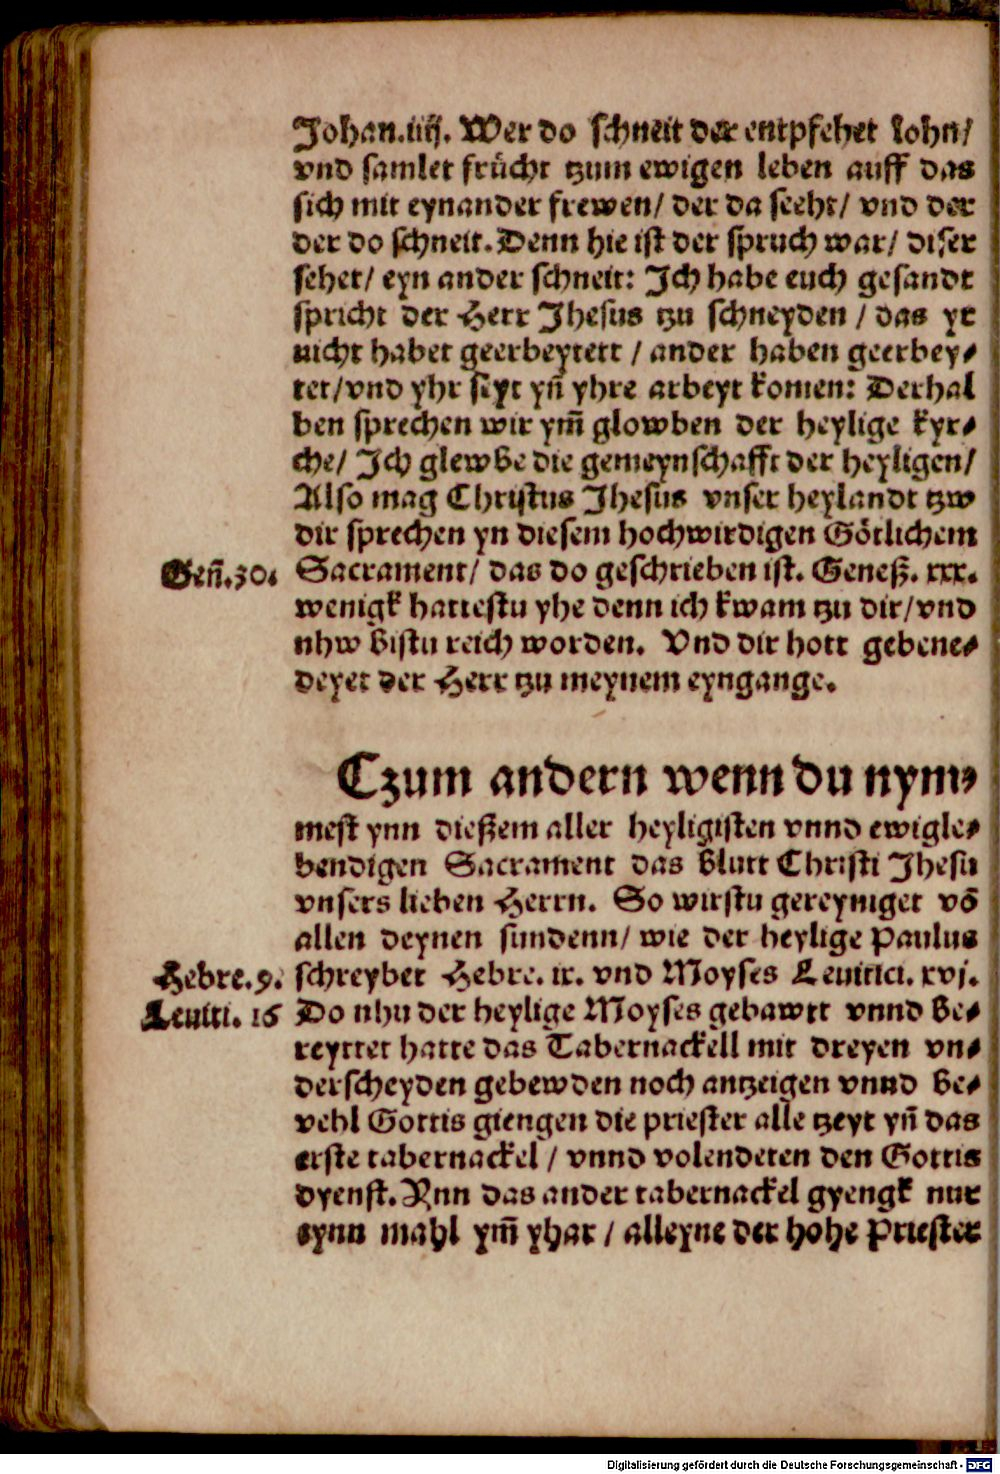 Johan.iiij. Wer do schneit der entpfehet lohn/
vnd samlet frücht tzum ewigen leben auff das
sich mit eynander frewen/ der da seeht/ vnd der
der do schneit. Denn hie ist der spruch war/ diser
sehet/ eyn ander schneit: Ich habe euch gesandt
spricht der Herr Jhesus tzu schneyden / das yr
nicht habet geerbeytett / ander haben geerbey⸗
tet/vnd yhr seyt yn̄ yhre arbeyt komen: Derhal
ben sprechen wir ym̄ glowben der heylige kyr⸗
che/ Ich glewbe die gemeynschafft der heyligen/
Also mag Christus Jhesus vnser heylandt tzw
dir sprechen yn diesem hochwirdigen Götlichem
Gen̄.30. Sacrament/ das do geschrieben ist. Geneß. xxx.
wenigk hattestu yhe denn ich kwam tzu dir/vnd
nhw bistu reich worden. Vnd dir hott gebene⸗
deyet der Herr tzu meynem eyngange.
Czum andern wenn du nym⸗
mest ynn dießem aller heyligisten vnnd ewigle⸗
bendigen Sacrament das blutt Christi Jhesu
vnsers lieben Herrn. So wirstu gereyniget vō
allen deynen sundenn/ wie der heylige Paulus
Hebre.9. schreybet Hebre. ix. vnd Moyses Leuitici. xvj.
Leuiti. 16 Do nhu der heylige Moyses gebawtt vnnd be⸗
reyttet hatte das Tabernackell mit dreyen vn⸗
derscheyden gebewden noch antzeigen vnnd be⸗
vehl Gottis giengen die priester alle tzeyt yn̄ das
erste tabernackel / vnnd volendeten den Gottis
dyenst. Ynn das ander tabernackel gyengk nur
eynn mahl ym̄ yhar / alleyne der hohe Priester
Digitalisierung gefördert durch die Deutsche Forschungsgemeinschaft - DFG